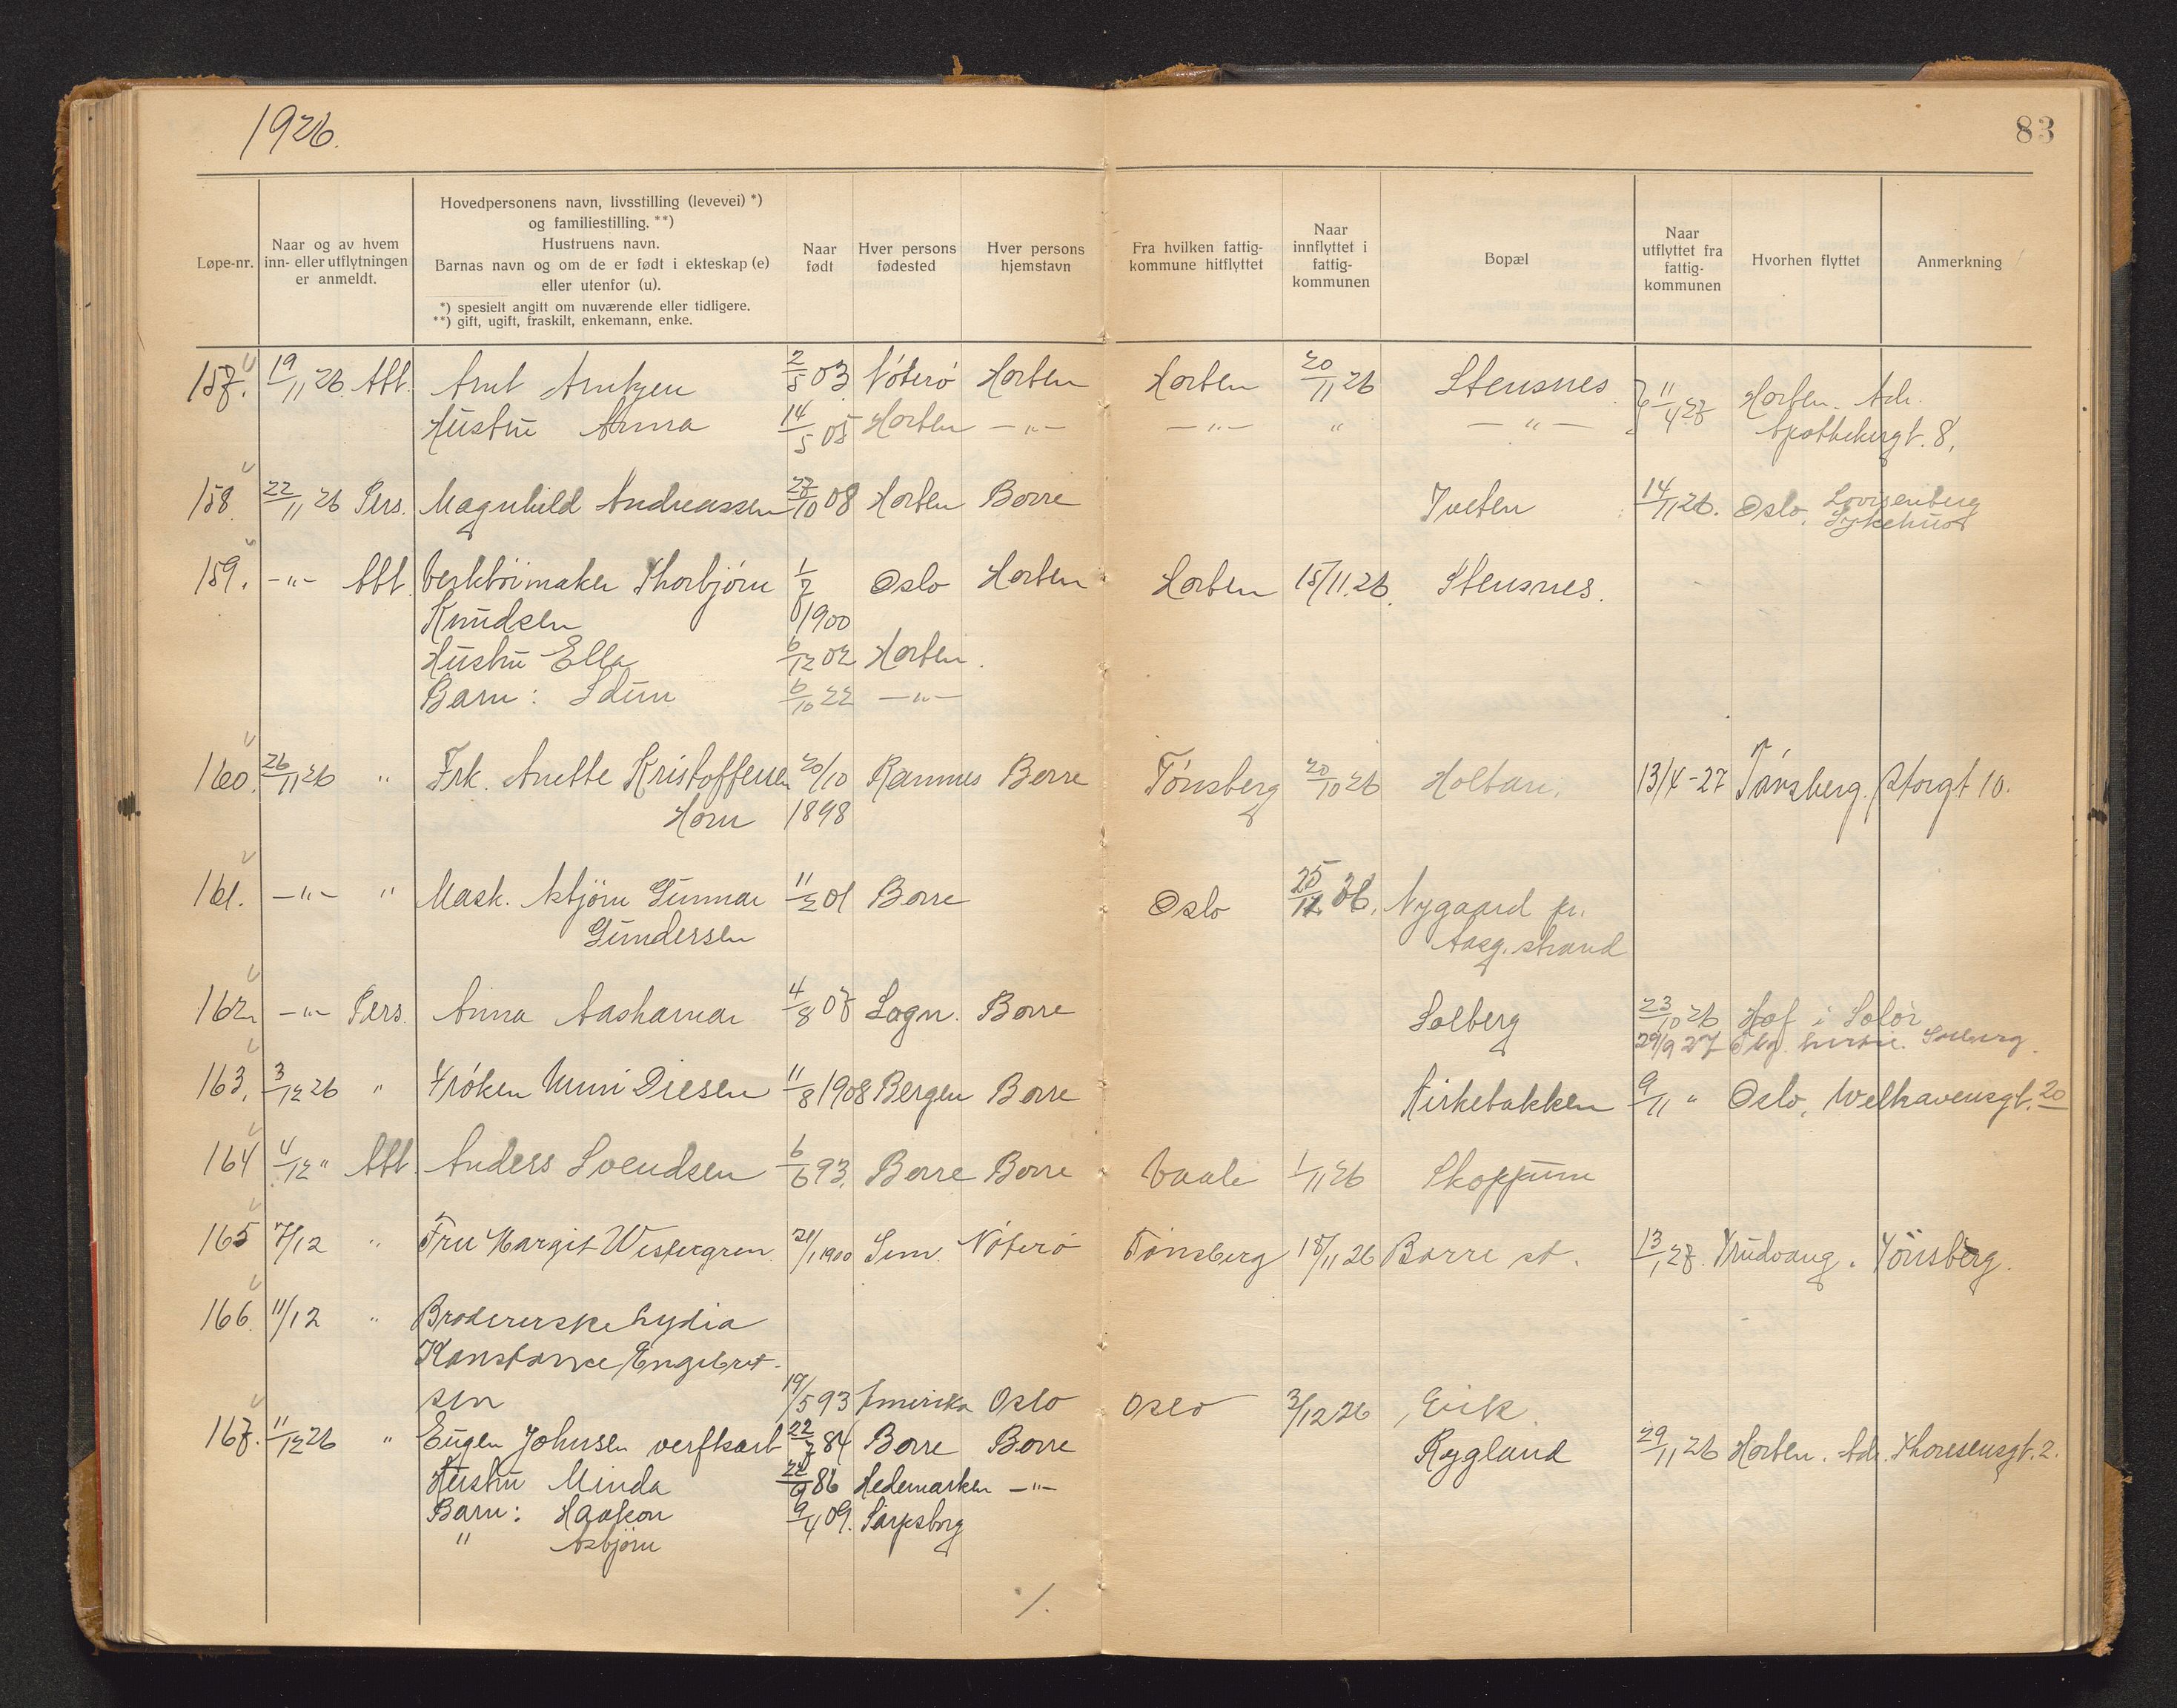 1926.
83
Løpe-nr.
Naar og av hvem
inn- eller utflytningen
er anmeldt.
Hovedpersonens navn, livsstilling (levevei) *)
og familiestilling. **)
Hustruens navn.
Barnas navn og om de er født i ekteskap (e)
eller utenfor (u).
*) spesielt angitt om nuværende eller tidligere.
**) gift, ugift, fraskilt, enkemann, enke.
Naar
født
Hver persons
fødested
Hver persons
hjemstavn
Fra hvilken fattig-
kommune hitflyttet
Naar
innflyttet i
fattig-
kommunen
Bopæl
Naar
utflyttet fra
fattig-
kommunen
Hvorhen flyttet
Anmerkning
157. 19/11 26. Att. Arnt Arntzen 2/5 03 Nøterø Horten Horten 20/11 26 Stensnes 11/4 27 Horten. Adr.
Hustru Anna 14/5 05 Horten -"- -"- " -"- Apothekergt. 8.
158. 22/11 26 Pers. Magnhild Andreassen 27/10 08 Horten Borre 14/11 26. Oslo, Lovisenberg
Sykehus
159. -"- Att. Verktøimaker Thorbjørn 1/7 Oslo Horten Horten 15/11.26. Stensnes.
Knudsen 1900
Hustru Ella 6/12 02 Horten.
Barn: Idun 6/10 22 -"-
160. 26/11 26 " Frk. Anette Kristoffersen 20/10 Ramnes Borre Tønsberg 20/10 26 Holtan. 13/4-27 Tønsberg. Storgt 10.
Horn 1898
161. -"- " Mask. Asbjørn Gunnar 11/2 01 Borre Oslo 25/11 26. Nygaard pr.
Gundersen Aasg.strand
162. -"- Pers. Anna Aashamar 4/8 07 Sogn. Borre Solberg 23/10 26 Hof i Solør
29/9 27 Solberg.
163. 3/12 26 " Frøken Unni Diesen 11/8 1908 Bergen Borre Kirkebakken 9/11 " Oslo, Welhavensgt. 20
164 4/12 " Att. Anders Svendsen 6/6 93. Borre Borre Vaale 1/11 26 Skoppum
165 7/12 " Fru Margit Westergren 21/1 1900 Sem. Nøterø Tønsberg 18/11 26 Borre st. 13/1 27. Trudvang. Tønsberg.
166. 11/12 " Brodererske Lydia
Konstance Engebret-
sen 19/5 93 Amerika Oslo Oslo 3/12 26 Eik.
167. 11/12 26 " Eugen Johnsen verftsarb 22/7 84 Borre Borre Rygland 29/11 26 Horten. Adr. Thoresensgt. 2.
Hustru Minda 22/9 86 Hedemarken -"-
Barn: Haakon 9/4 09. Sarpsborg
" Asbjørn
./.